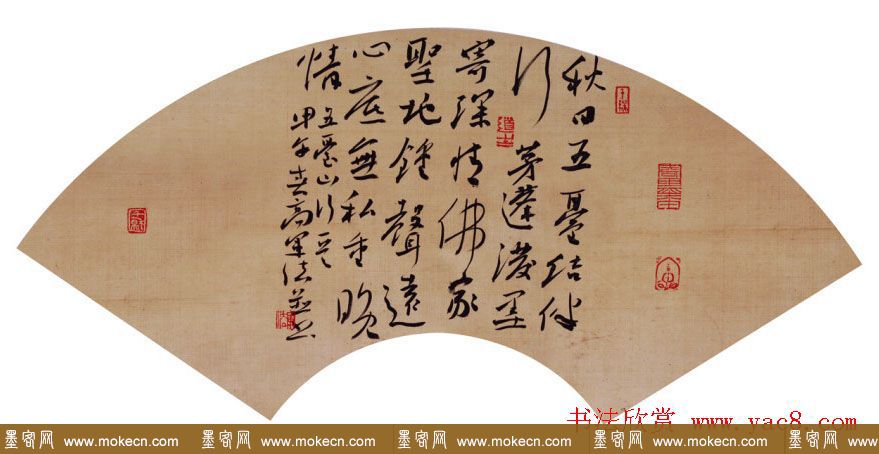 秋日五臺結伴
行茅蓬潑墨
寄深情佛家
聖地鐘聲遠
心底無私重晚
情
五臺山行吟
甲午春高軍法并書
道士
书法欣赏 www.yac8.com
墨客网 www.mokecn.com 墨客网 www.mokecn.com 墨客网 www.mokecn.com 墨客网 www.mokecn.com